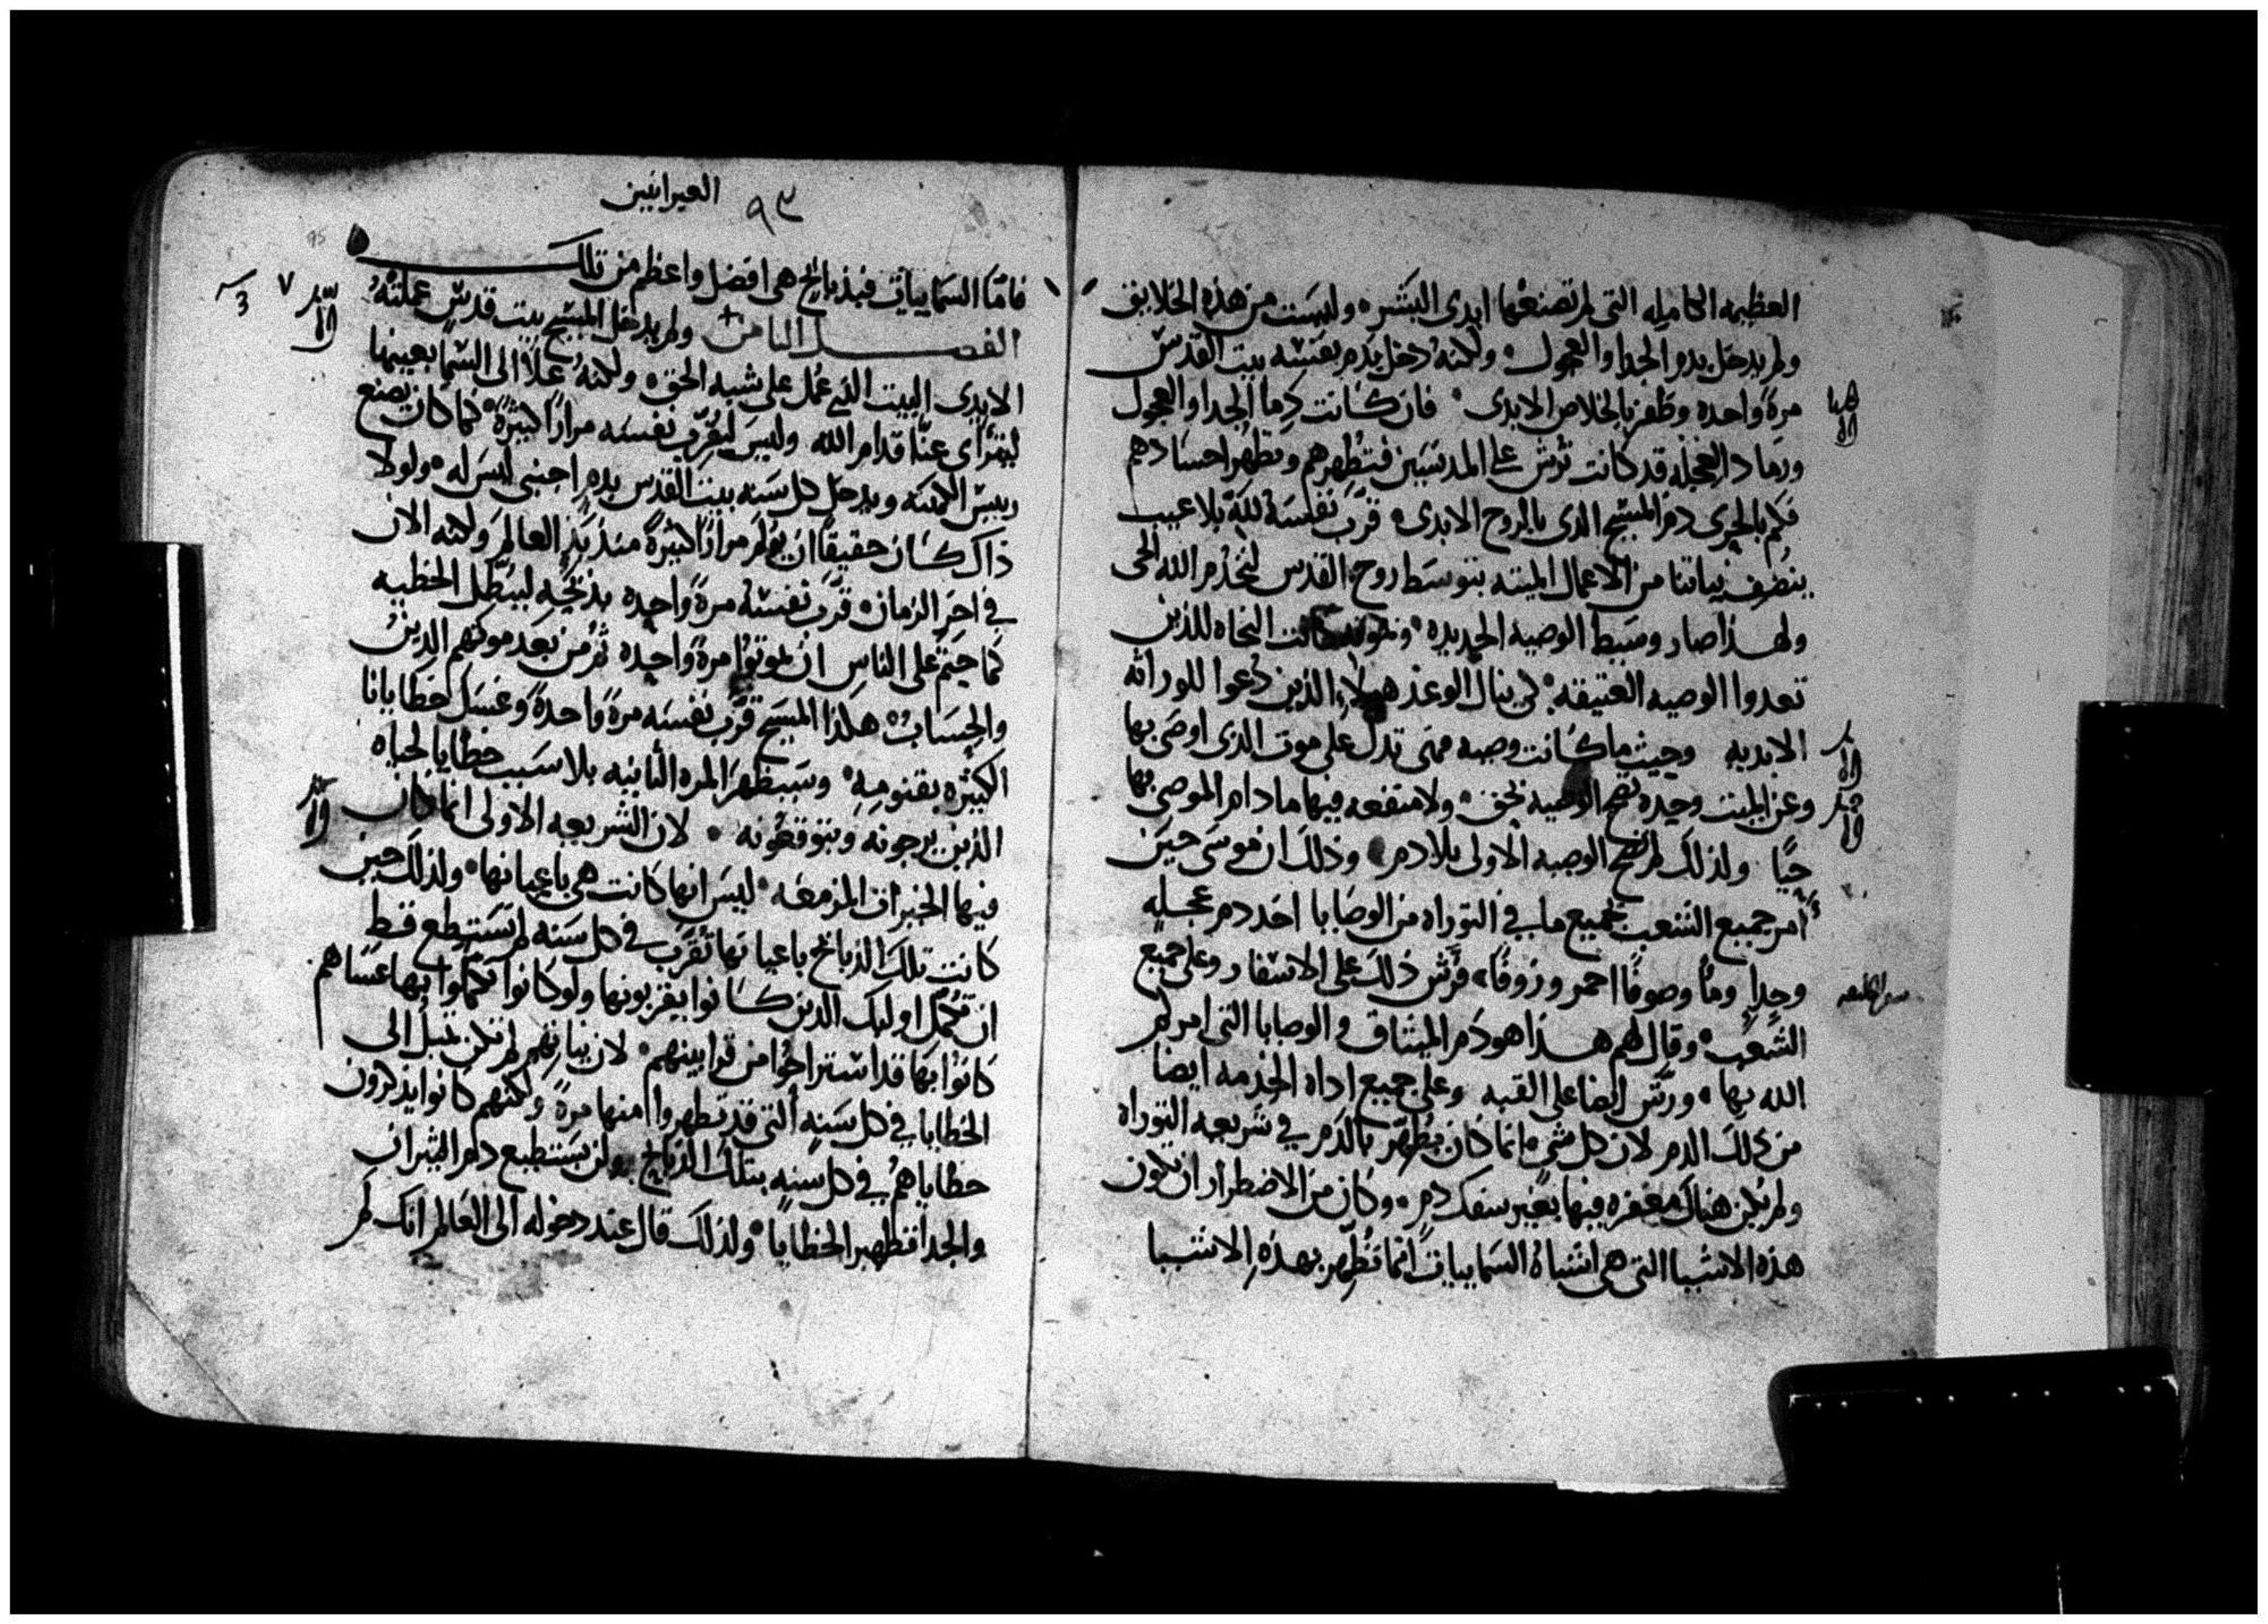 العظيمه الكامله التى لم تصنعها ايدى البشر ۰ وليست من هذه الخلايق
ولم يدخل بدم الجدا والعجول ۰ ولكنه دخل بدم بفسه بيت القدس
مرة واحده وظفر بالخلاص الابدى ۰ فان كانت دما الجدا والعجول
ورماد العجله قد كانت ترش على المدنسين فتطهرهم وتطهر اجسادهم
فكم بالحرى دم المسيح الذى بالروح الابدى ۰ قرب نفسه لله بلا عيب
نياتنا من الاعمال الميته بتوسط روح القدس لنخدم الله الحى
ولهذا صار وسيط الوصيه الجديده ۰ كانت النجاه للذين
تعدوا الوصيه العتيقه ۰ لكى ينال الوعد هولاء الذين دعوا للوراثه
الابديه وحيث ما كانت وصيه فهى تدل على موت الذى اوصى بها
وعن الميت وحده تصح الوصيه بحق ۰ ولا منفعه فيها ما دام الموصى بها
حيًا ولذلك لم تصح الوصيه الاولى بلا دم ۰ وذلك ان موسى حين
أمر جميع الشعب بجميع ما في التوراه من الوصايا اخد دم عجله
وجدا وما وصوفًا احمر وزوفًا ۰ فرش ذلك على الاسفار وعلى جميع
الشعب ۰ وقال لهم هذا هو دم الميثاق والوصايا التى امركم
الله بها ۰ ورش ايضا على القبه وعلى جميع اداه الخدمه ايضا
من ذلك الدم لان كل شى انما كان يطهر بالدم في شريعه التوراه
ولم يكن هناك مغفره فيها بغير سفك دم ۰ وكان من الاضطرار ان تكون
هذه الاشيا التى هى اشباه السماييات انما تطهر بهذه الاشيا
٩٣ العبرانيين
فاما السماييات فبذبايح هى افضل واعظم من تلك
الفصل الثامن + ولم يدخل المسيح بيت قدس عملته
الايدى البيت الذى عمل على شبه الحق ۰ ولكنه علا الى السما بعينها
ليترأى عنّا قدام الله وليس ليقرب نفسه مرارًا كثيرة ۰ كما كان يصنع
رييس الكهنه ويدخل كل سنه بيت القدس بدم اجنبى ليس له ۰ ولولا
ذاك كان حقيقًا ان يولم مرارًا كثيرة منذ بدء العالم ولكنه الان
في اخر الزمان ۰ قرب نفسه مرة واحده بذبحه ليبطل الخطيه
كما حتم على الناس ان يموتوا مرة واحده ثم من بعد موتهم الدين
والحساب ۰ هكذا المسيح قرب نفسه مرة واحدة وغسل خطايانا
الكثيره بقنومه ۰ وسيظهر المره الثانيه بلا سبب خطايا لحياه
الذين يرجونه ويتوقعونه ۰ لان الشريعه الاولى انما كان
فيها الخيرات المزمعه ۰ ليس انها كانت هى باعيانها ۰ ولذلك حين
كانت تلك الذبايح باعيانها تقرب في كل سنه لم تستطع قط
ان تكمل اوليك الذين كانوا يقربونها ولو كانوا تكملوا بها عساهم
كانوا بها قد استراحوا من قرابينهم ۰ لان نياتهم لم تكن تميل الى
الخطايا في كل سنه التى قد تطهروا منها مرة ولكنهم كانوا يذكرون
خطاياهم في كل سنه بتلك الذبايح ولن يستطيع دم الثيران
والجدا تطهير الخطايا ۰ ولذلك قال عند دخوله الى العالم انك لم